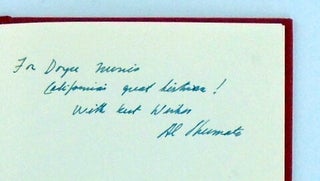 For Doyce Nunis
California's great historian!
With best wishes
Al Shumate